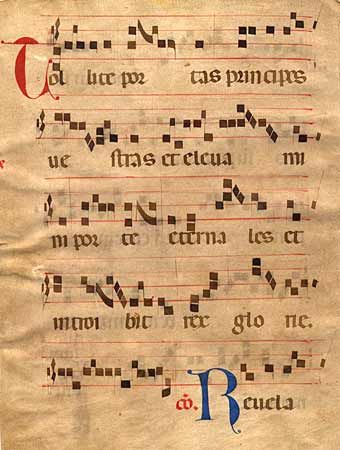 Tol lite por tas principes
ue stras et eleua mi
ni por te eterna les et
introi bit rex glo rie.
Reuela